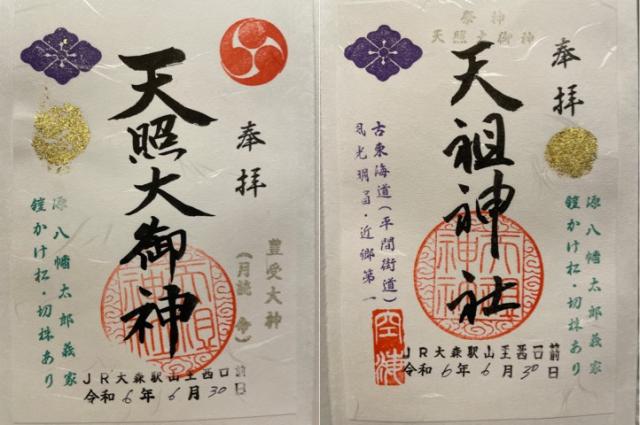 奉拝
天照大御神
豊受大神
(月読 命)
源八幡太郎義家
鎧かけ松・切株あり
JR大森駅山王西口前
令和6年6月30日
祭神
天照大御神
奉拝
天祖神社
源八幡太郎義家
鎧かけ松・切株あり
古東海道(平間街道)
風光明眉・近郷第一
JR大森駅山王西口前
令和6年6月30日